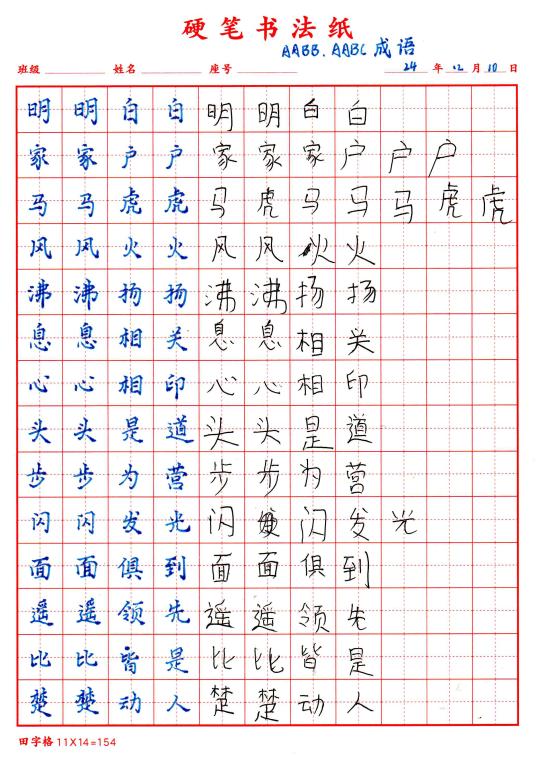 硬笔书法纸
AABB、AABC成语
班级 姓名 座号 24 年 12 月 10 日
明明白白明明白白
家家户户家家家户户户
马马虎虎马虎马马马虎虎
风风火火风风火火
沸沸扬扬沸沸扬扬
息息相关息息相关
心心相印心心相印
头头是道头头是道
步步为营步步为营
闪闪发光闪闪发光
面面俱到面面俱到
遥遥领先遥遥领先
比比皆是比比皆是
楚楚动人楚楚动人
田字格 11X14=154